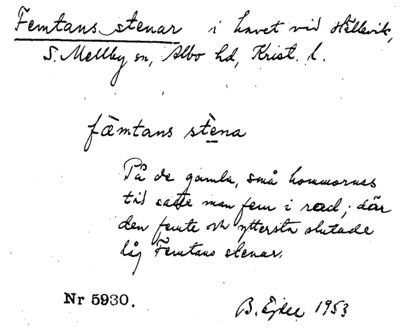 Femtans stenar i havet vid Hällevik,
S. Mellby sn, Albo hd, Krist. l.
fæmtans stena
På de gamla, små hommornas
tid satte man fem i rad; där
den femte och yttersta slutade
låg Femtans stenar.
Nr 5930. B. Ejder 1953